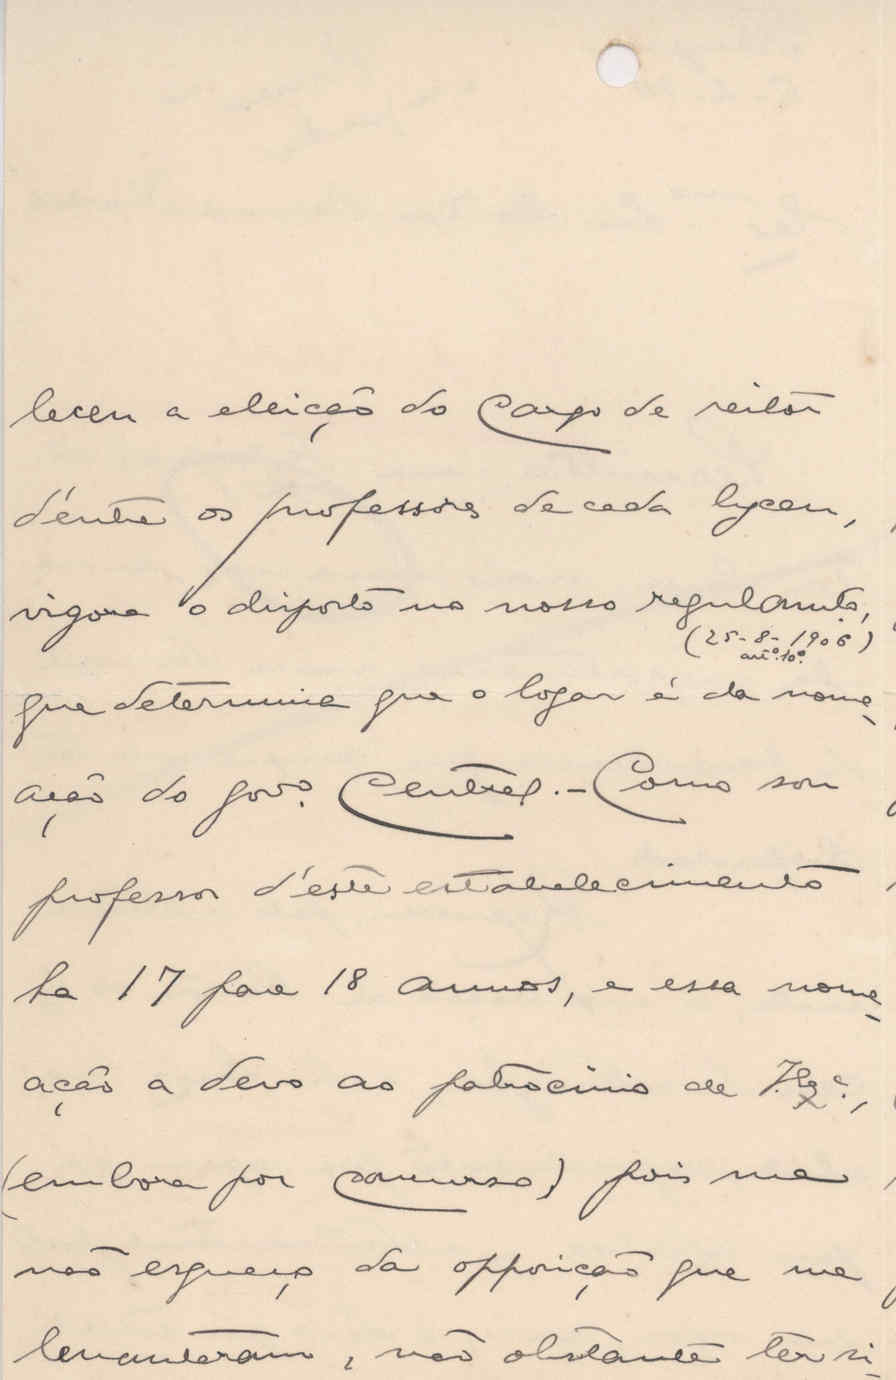 leceu a eleição do Cargo de reitor
d'entre os professores de cada lyceu,
vigora o disposto no nosso regulamto,
(25-8-1906)
artº. 10º.
que determina que o logar é da nome-
ação do govº. Central. - Como sou
professor d'este estabelecimento
ha 17 para 18 annos, e essa nome-
ação a devo ao patrocinio de V. Exª.,
(embora por concurso) pois me
não esqueço da opposição que me
levantaram, não obstante ter si-